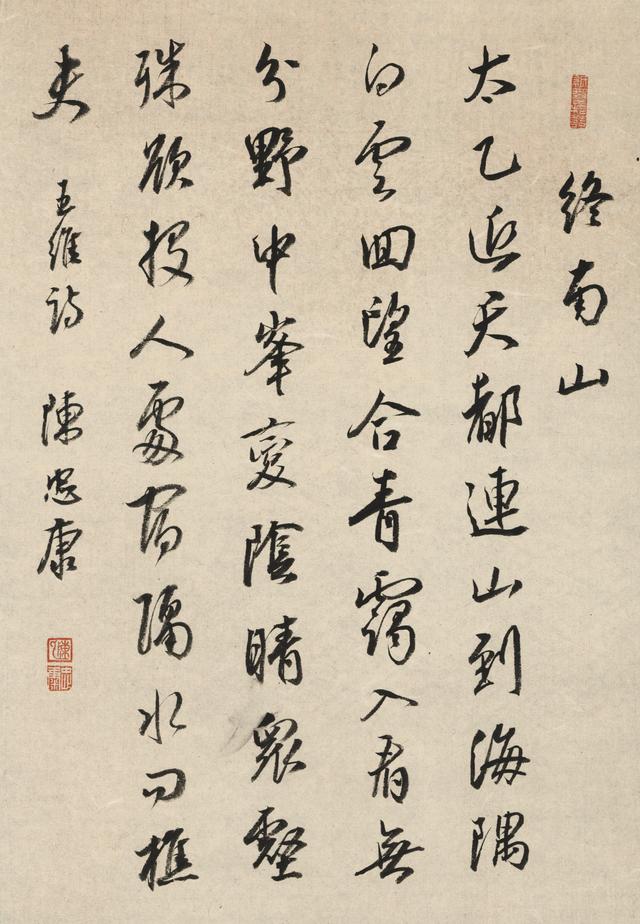 終南山
太乙近天都連山到海隅
白雲回望合青靄入看無
分野中峯變陰晴衆壑
殊欲投人處宿隔水問樵
夫 王維詩 陳忠康